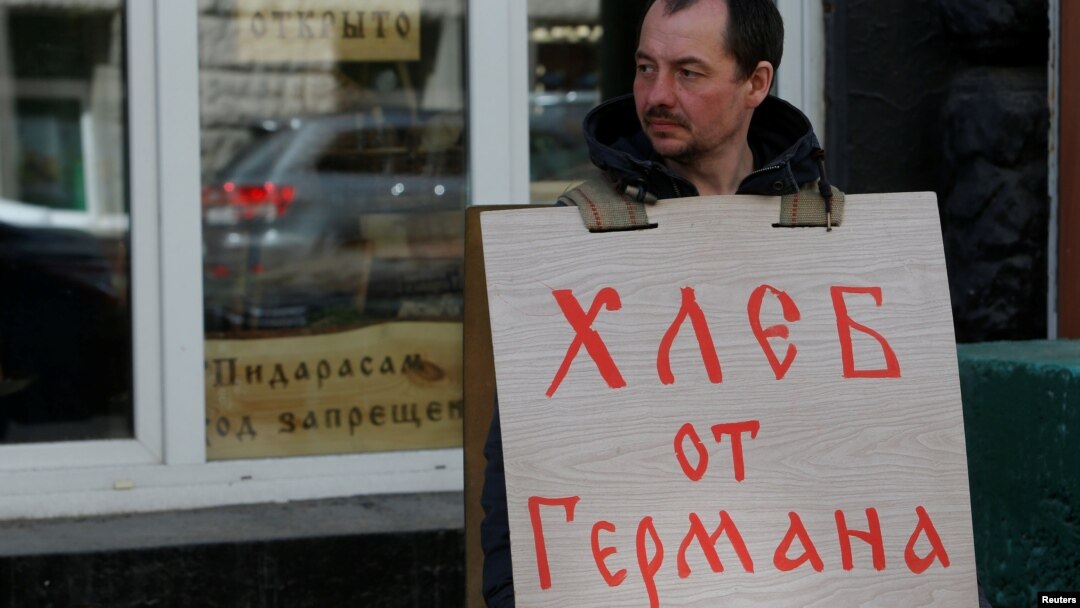 ОТКРЫТО
Пидарасам
од запрещен
ХЛЕБ
от
Германа
Reuters